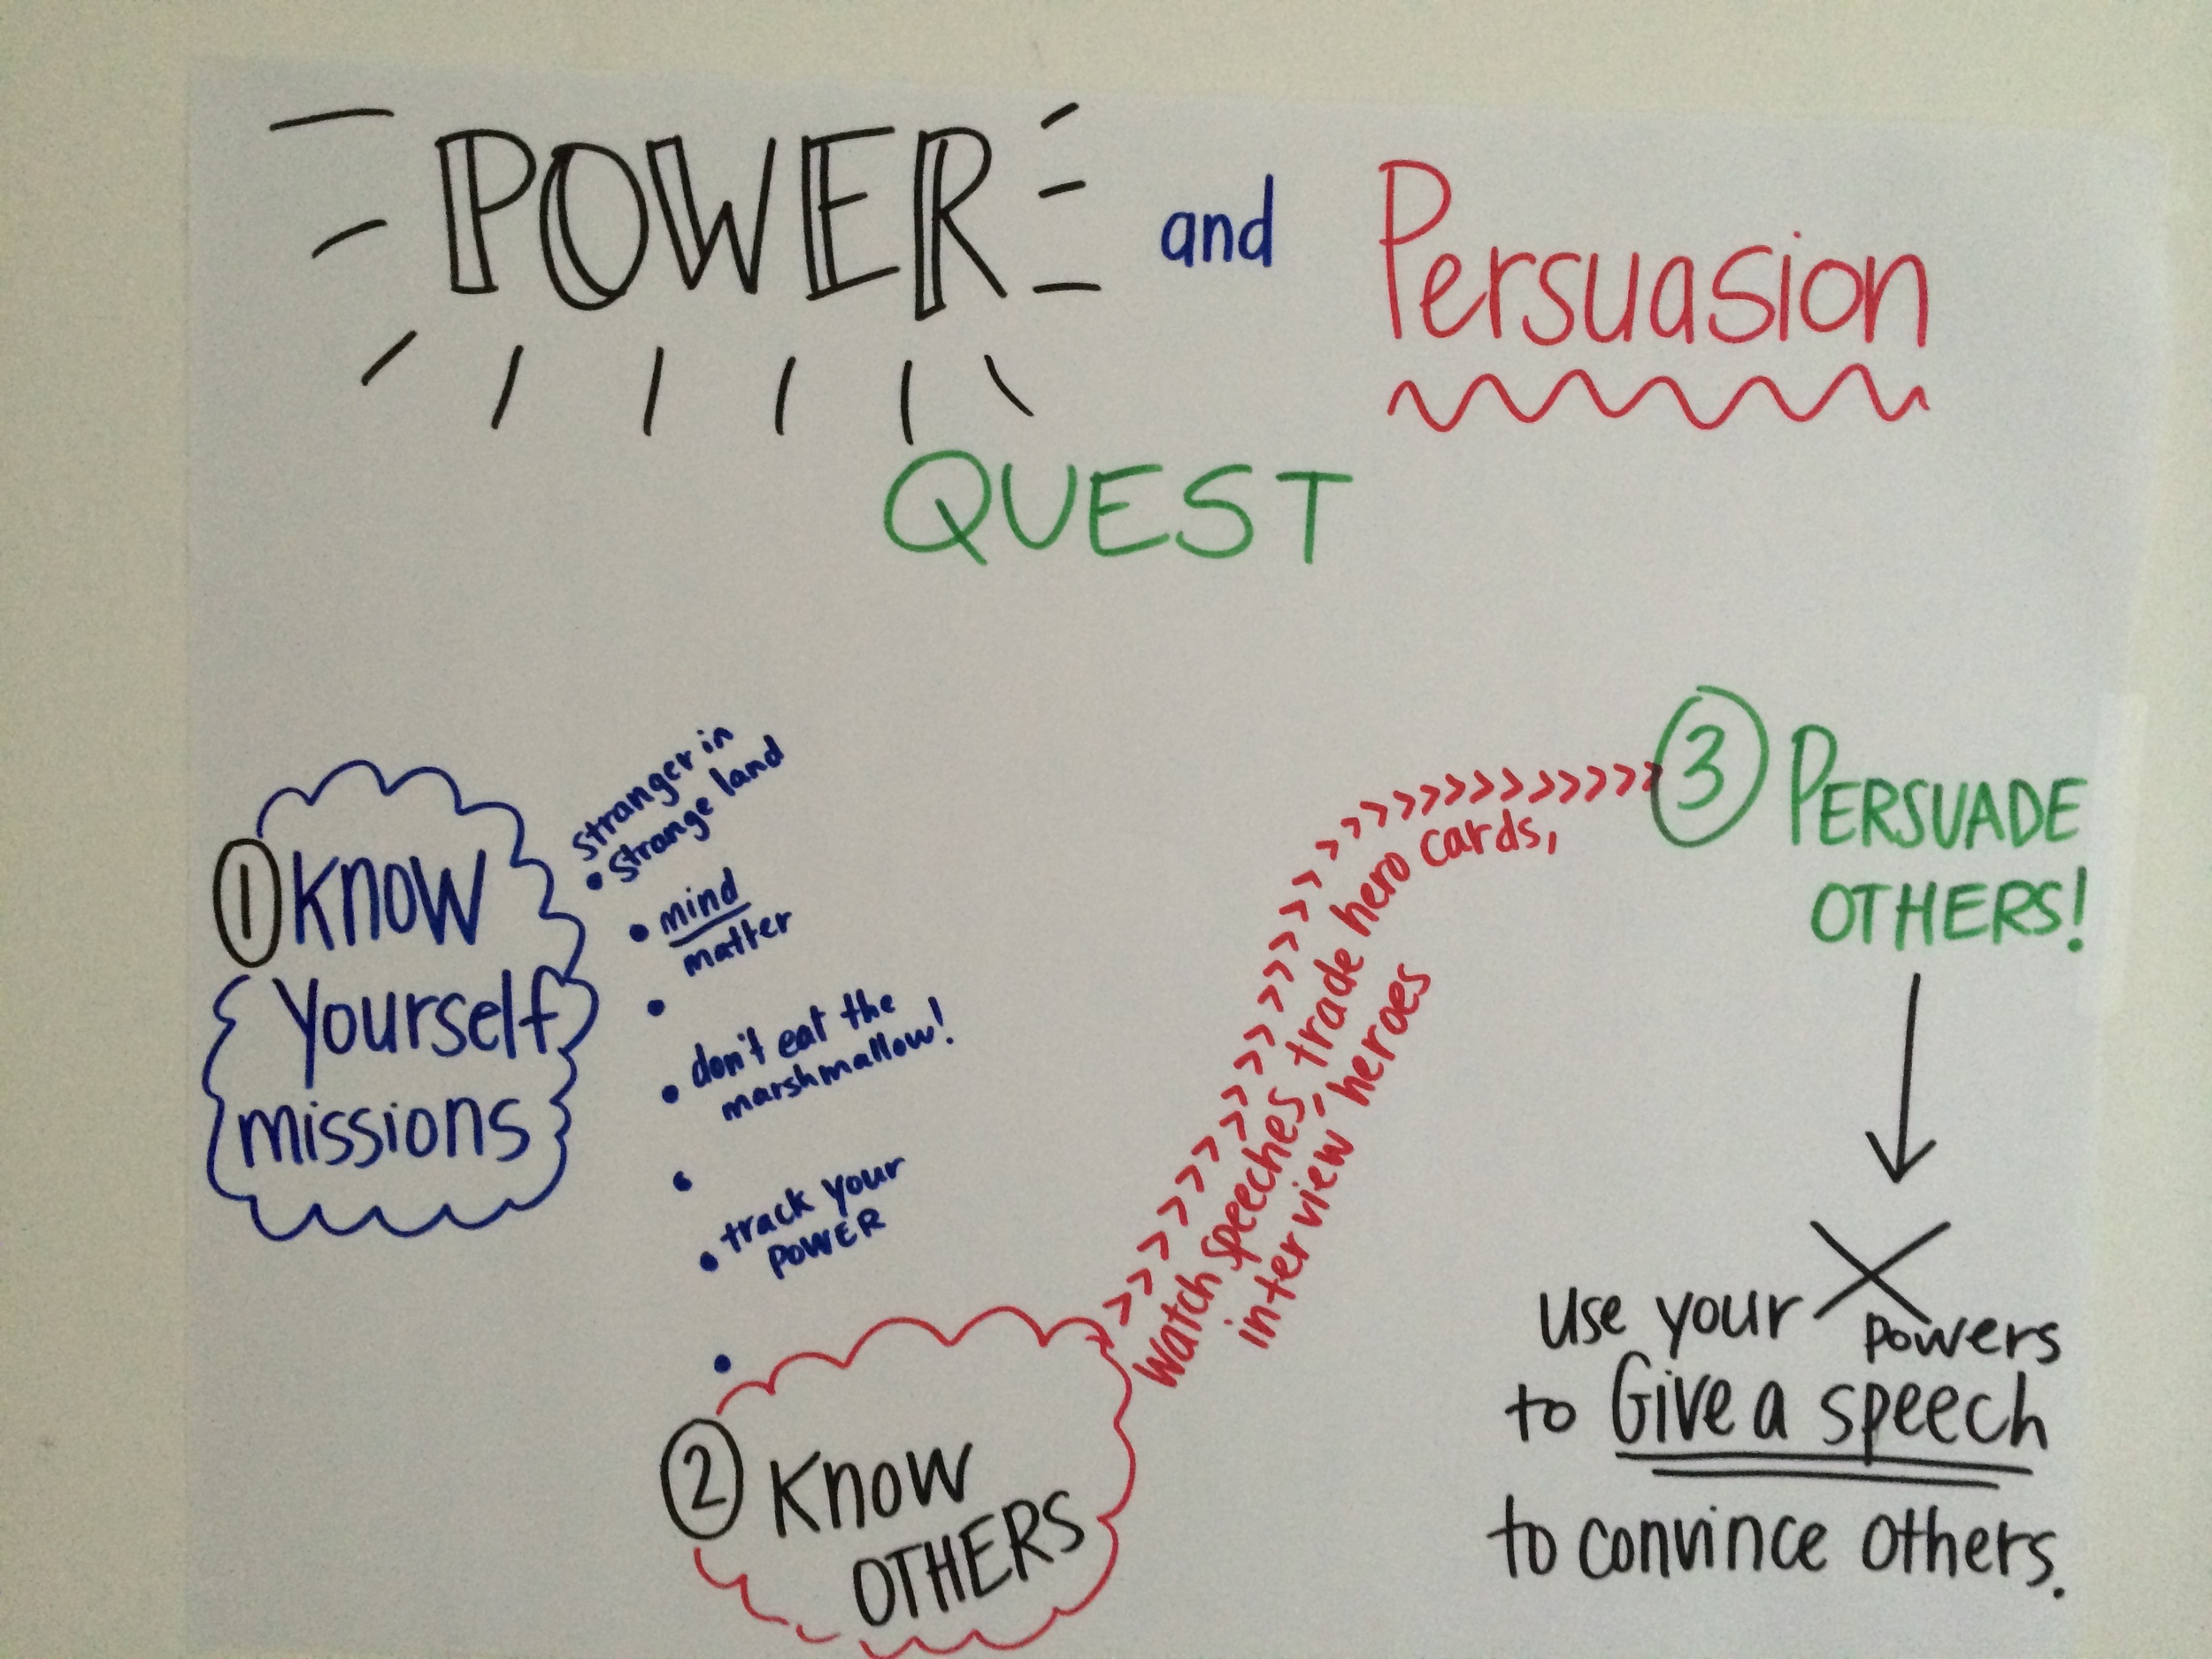 POWER and Persuasion
QUEST
① Know
Yourself
missions
stranger in
• strange land
• mind
matter
•
• don't eat the
marshmallow!
•
• track your
POWER
•
② Know
OTHERS
Watch speeches, trade hero cards,
interview heroes
③ PERSUADE
OTHERS!
Use your X powers
to Give a speech
to convince others.